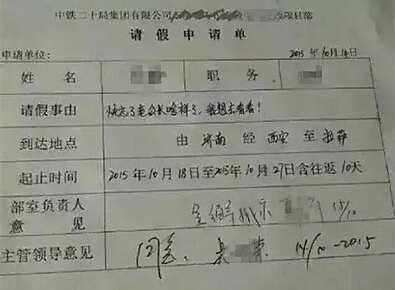 中铁二十局集团有限公司 项目部
请假申请单
申请单位： 2015年10月14日
姓名 职务
请假事由 快忘了老婆长啥样了，我想去看看！
到达地点 由济南经西安至拉萨
起止时间 2015年10月18日至2015年10月27日含往返10天
部室负责人
意见 15/10
主管领导意见 同意、 14/10-2015